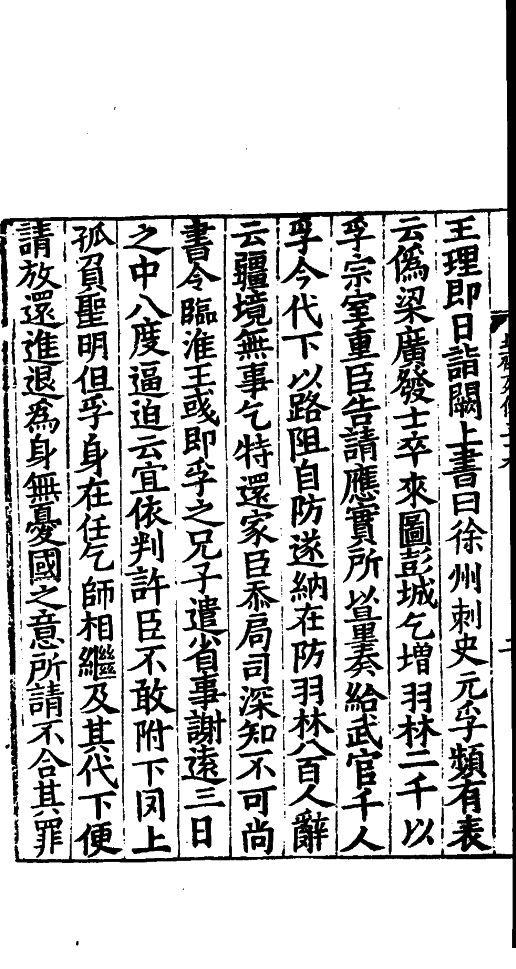 王理即日詣闕上書曰徐州刺史元孚頻有表
云僞梁廣發士卒來圖彭城乞增羽林二千以
孚宗室重臣告請應實所以量奏給武官千人
孚今代下以路阻自防遂納在防羽林八百人辭
云疆境無事乞特還家臣忝局司深知不可尚
書令臨淮王彧即孚之兄子遣省事謝遠三日
之中八度逼迫云宜依判許臣不敢附下罔上
孤負聖明但孚身在任乞師相繼及其代下便
請放還進退爲身無憂國之意所請不合其罪